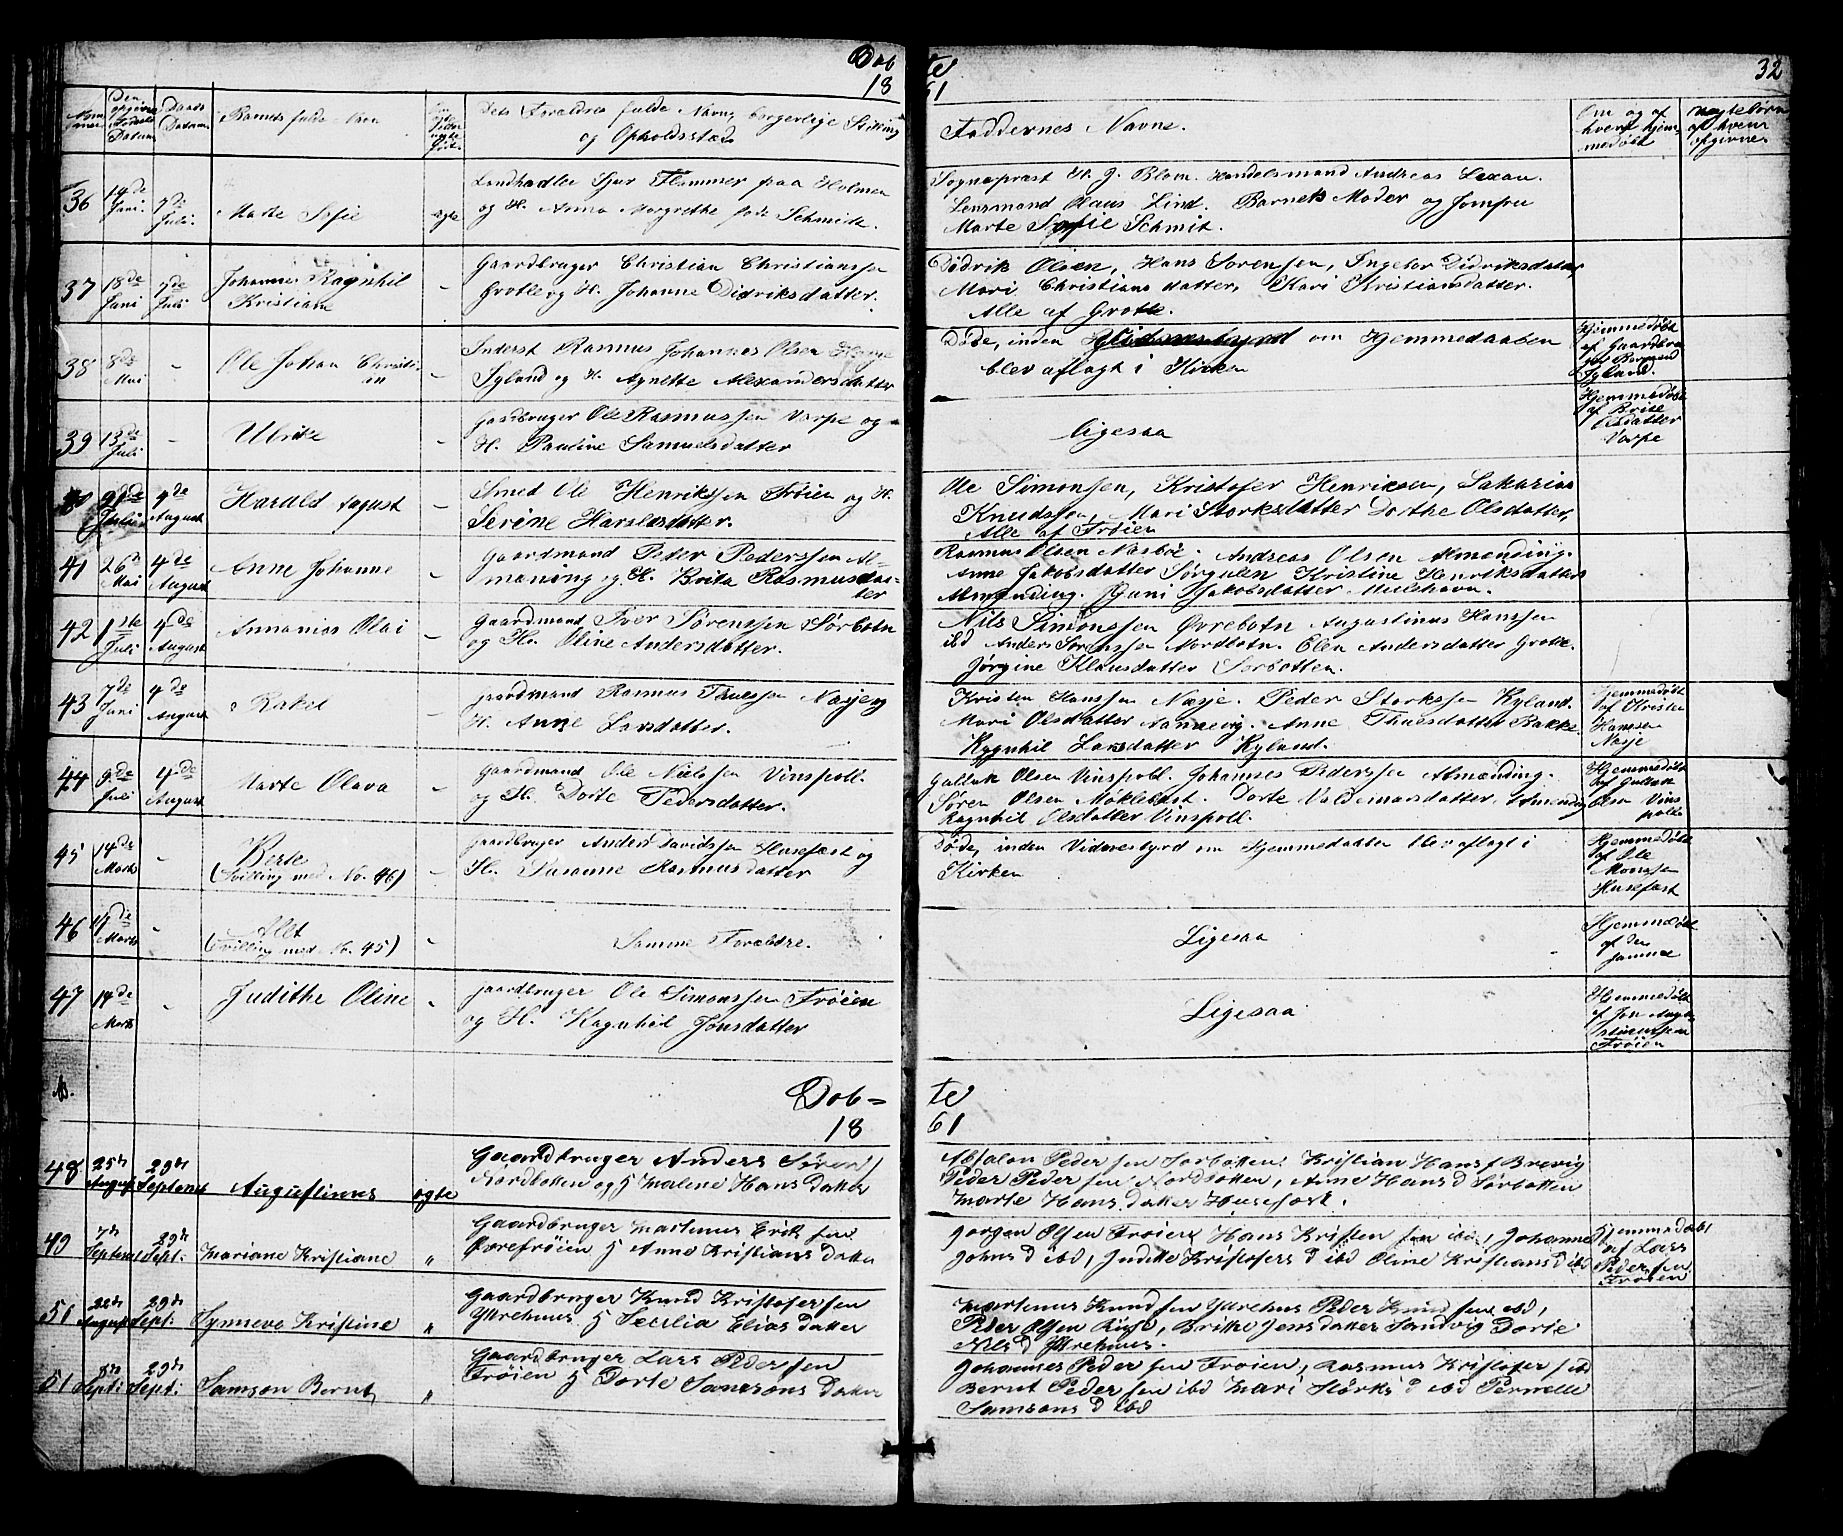 Døb
18
te
61
32
Døbte Datum
Barnets fulde Navn
Dets Forældres fulde Navn, borgerlige Stilling
og Opholdssted
Faddernes Navne.
Om og af
hvem hjem-
medøbt
uægte børn
af hvem
opgivne
36 14de Juni 7de Juli. Marte Sofie ægte
Landhandler Sjur Flemmer paa Holmen
og H. Anna Margrethe født Schmidt.
Sogneprest H. J. Blom. Handelsmand Andreas
Lensmand Claus Lind. Barnets Moder og Jomfru
Marte Sofie Schmit.
37 18de Juni 7de Juli Johannes Ragnhil
Kristiane
Gaardbruger Christian Christianssen
Grotle og H. Johanne Didriksdatter.
Didrik Olsen, Hans Sørensen, Ingebor Didriksdatter
Mari Christians datter, Kari Kristiansdatter.
Alle af Grotle.
38 8de Mai - Ole Johan Christi-
an -
Inderst Rasmus Johannes Olsen
Igland og H. Agnette Alexandersdatter
Døde, inden om Hjemmedaaben
blev aflagt i Kirken
Hjemmedøbt
af Gaardbru
ger Rasmus
Igland.
39 13de Juli - Ulrike -
Gaardbruger Ole Rasmussen Varpe og
H. Pauline Samuelsdatter
Ligesaa
Hjemmedøbt
af Brite
Olsdatter
Varpe
Juli 4de August Harald August -
Smed Ole Henrikssen Frøien og H.
Serine Haraldsdatter.
Ole Simonsen, Kristofer Henriksen, Sakarias
Knudssen, Mari Storksdatter Dorthe Olsdatter,
Alle af Frøien
41 26de Mai 4de August Anne Johanne -
Gaardmand Peder Pederssen Al-
mæning og H. Brita Rasmusdat-
ter
Rasmus Olsen Nasbøe. Andreas Olsen Almænding.
Anne Jakobsdatter Sørgulen Kristine Henriksdatter
Almending. Jakobsdatter
42 1ste Juli 4de August Annanias Olai -
Gaardmand Iver Sørenssen Sørbotn
og H. Oline Andersdatter.
Nils Simonssen Øvrebotn Augustinus Hanssen
ibd Anders Sørenssen Nordbotn. Elen Andersdatter Grotle.
Jørgine Klausdatter Sørbotten.
43 7de Juni 4de August Rakel -
Gaardmand Rasmus Thuessen Nasje og
H. Anne Larsdatter.
Kristen Hanssen Nasje. Peder Storkssen Hyland.
Mari Olsdatter Aannevig. Anne Thuesdatter Bakke.
Rygnhil Larsdatter Hyland.
Hjemmedøbt
af Kristen
Hanssen
Nasje
44 9de Juli 4de August Marte Olava -
Gaardmand Ole Nielssen Vinspoll.
og H. Dorte Pedersdatter.
Gullak Olsen Vinspoll. Johannes Pederssen Almænding.
Søren Olsen Møklebust. Dorte Valdemarsdatter. Almending
Ragnhil Olsdatter Vinspoll.
Hjemmedøbt
af Gullak
Olsen Vins
poll
45 14de Marts - Berte
(Tvilling med No. 46) -
Gaardbruger Anders Davidssen Husefast og
H. Susanne Rasmusdatter
Døde, inden Vidnesbyrd om Hjemmedaaben blev aflagt i
Kirken
Hjemmedøbt
af Ole
Monssen
Husefast
46 14de Marts - Alet
(Tvilling med No. 45) -
Samme Forældre.
Ligesaa
Hjemmedøbt
af den
samme
47 14de Marts - Judithe Oline -
Gaardbruger Ole Simonssen Frøien
og H. Ragnhil Jonsdatter
Ligesaa
Hjemmedøbt
af Jon
Frøien
Døb-
18
te
61
48 25de August 29de September Augustinus ægte
Gaardbruger Anders Sørens
Nordbotten og H Malene Hansdatter
Absalon Pedersen Sørbotten. Kristian Hans Brevig
Peder Pedersen Nordbotten, Anne Hans D Sørbotten
Marte Hansdatter Husefast.
49 7de September 29de Sept: Mariane Kristiane "
Gaardbruger Martinus Eriksen
Frøien H Anne Kristiansdatter
Jørgen Olsen Frøien Hans Kristensen ibd, Johanne
Johns D ibd, Judithe Kristofers D ibd Oline Kristians D ibd
Hjemmedøbt
af Lars
Pedersen
Frøien
51 22de August 29de Sept: Synneve Kristine "
Gaardbruger Knud Kristofersen
Ytrehus H Cecilia Eliasdatter
Martenus Knudsen Ytrehus Peder Knudsen ibd,
Peder Olsen Brithe Jensdatter Sandvig Dorte
Nils D Ytrehuus.
51 8de Sept: 29de Sept: Samson Bernt "
Gaardbruger Lars Pederssen
Frøien H Dorte Samsonsdatter
Johannes Pedersen Frøien, Rasmus Kristofers ibd
Bernt Pedersen ibd Mari Størks D ibd Pernelle
Samsons D ibd